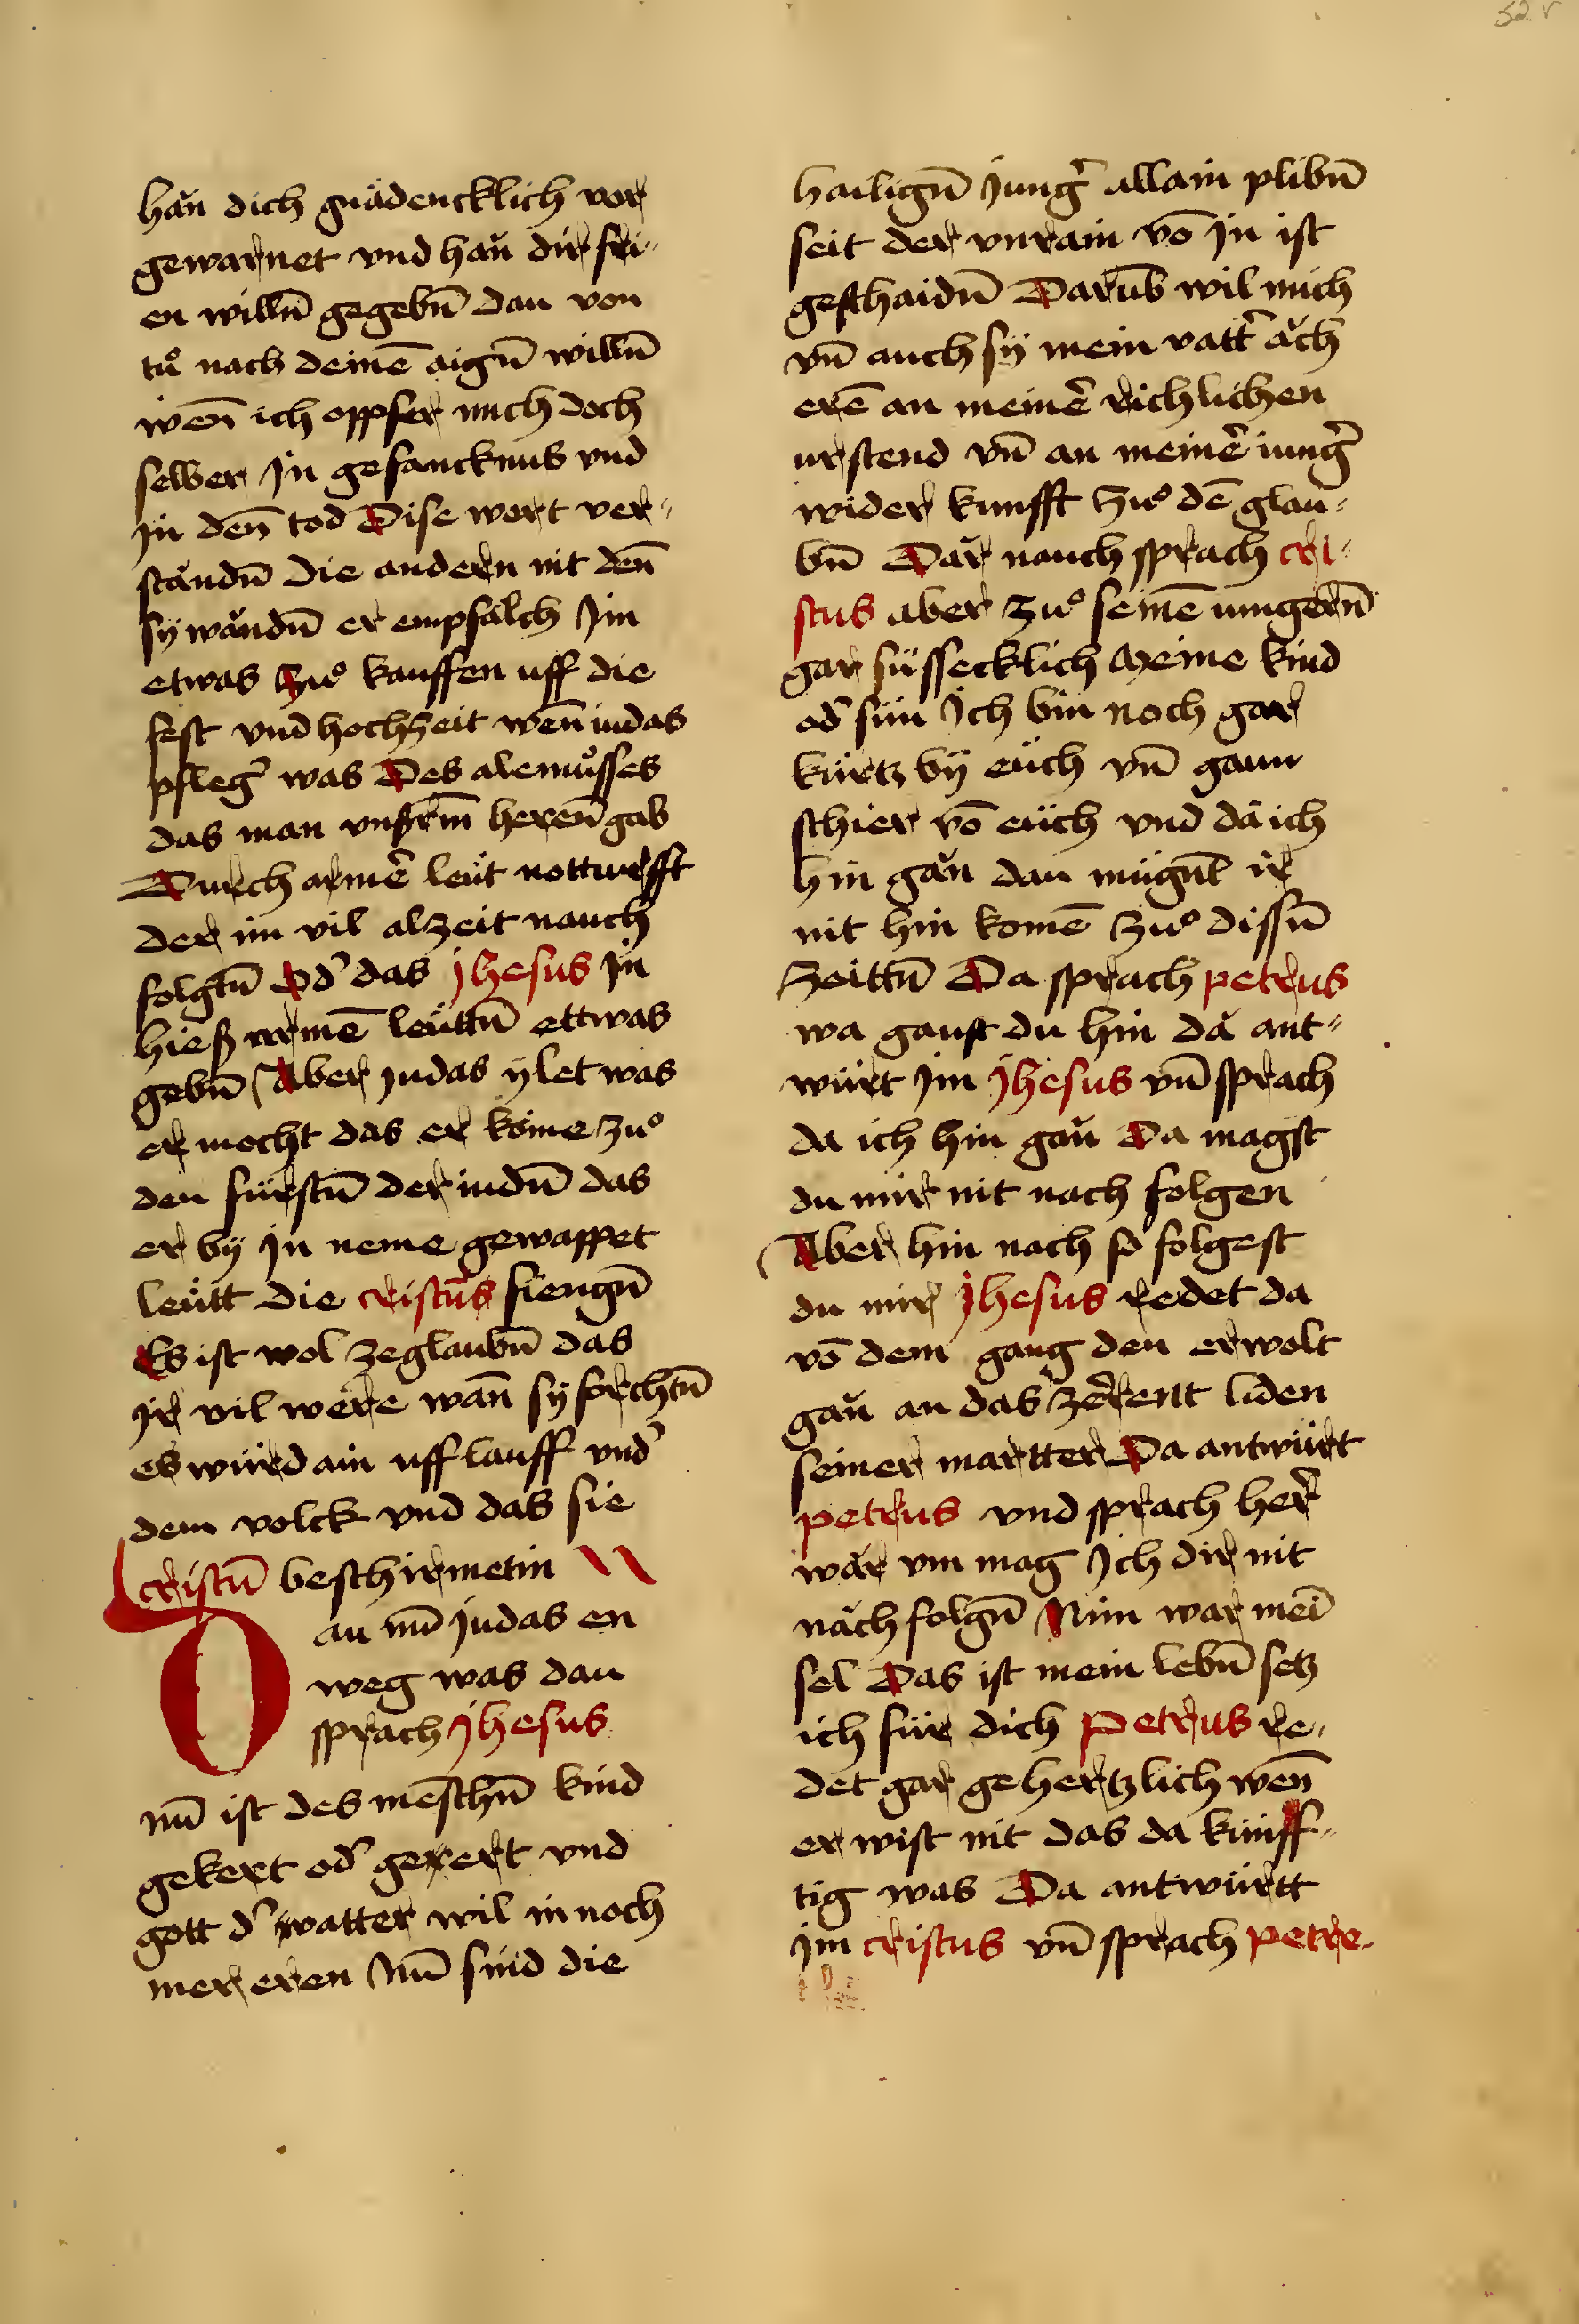 52 r
hǎn dich gnädencklich vor
gewarnet vnd hǎn dir fri-
en willn̄ gegebn̄ dan von
tů nach deinē aign̄ willn̄
wen̄ ich oppfer mich doch
selber Jn gefancknus vnd
Jn den̄ tod Dise wort ver-
stǎndn̄ die andern nit den̄
sÿ wǎndn̄ er empfǎlch Jm
etwas zuͦ kauffen uff die
fest vnd hochzeit wen̄ iudas
pfleg᷑ was Des alemůsses
das man vnßrm̄ heren̄ gab
Durch armē leüt notturfft
der im vil alzeit nauch
folgtn̄ Od᷑ das jhesus Jn
hieß armē leüttn̄ ettwas
gebn̄ Aber judas ÿlet was
er mocht das er köme zuͦ
den fürstn̄ der iudn̄ das
er bÿ Jn neme gewappet
leütt die cristūs fiengn̄
Es ist wol zeglaubn̄ das
Jr vil were wan̄ sÿ forchtn̄
es würd ain uff lauff vnd᷑
dem volck vnd das sie
cristū beschirmetin
Dau nū judas en
weg was dau
sprach jhesus
nū ist des mēschn̄ kind
gekert od᷑ gerert vnd
gott d᷑ vatter wil in noch
mer eren Nū sind die
hailign̄ jung᷑ allain plibn̄
seit der vnrain vō Jn ist
geschaidn̄ Darūb wil mich
vn̄ auch sÿ mein vatt᷑ ǎch
erē an meinē richlichen
urstend vn̄ an meinē iung᷑
wider kunfft zuͦ dē glau-
bn̄ Dǎr nauch sprach cri-
stus aber zuͦ seinē iungern̄
gar süssecklich Meine kind
od᷑ sün Jch bin noch gar
kürtz bÿ eüch vn̄ gaun
schier vō eüch vnd dǎ ich
hin gǎn dan mügn̄t ir
nit hin komē zuͦ dissn̄
zeittn̄ Da sprach petrus
wa gaust du hin dǎ ant-
würt Jm jhesus vn̄ sprach
da ich hin gǎn Da magst
du mir nit nach folgen
Aber hin nach so folgest
du mir jhesus redet da
vō dem gang den er wolt
gǎn an das zererst liden
seiner martter Da antwürt
petrus vnd sprach her᷑
wǎr vm mag Jch dir nit
nǎch folgn̄ Nim war mei᷑
sel Das ist mein lebn̄ setz
ich für dich Petrus re-
det gar gehertzlich wen̄
er wist nit das da künff-
tig was Da antwürtt
Jm cristus vn̄ sprach petre